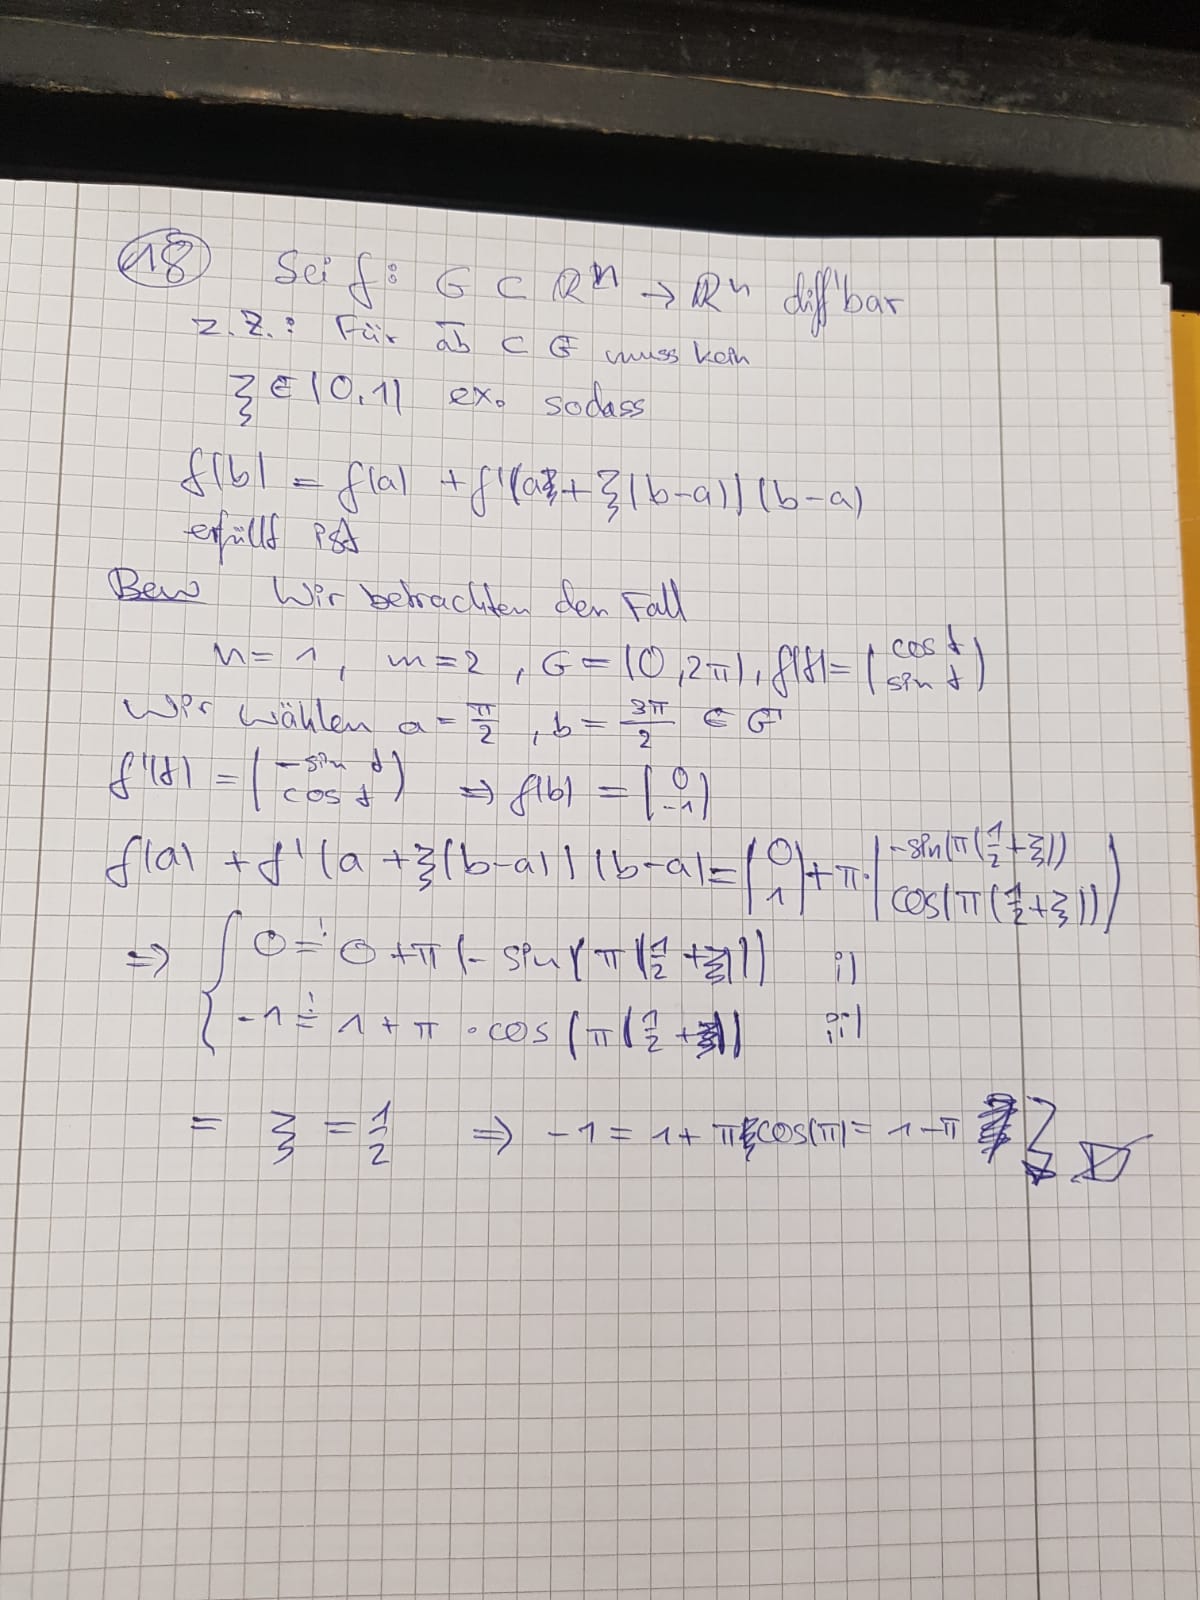 18 Sei f: G ⊂ ℝⁿ → ℝⁿ diff'bar
z.Z.: Für a̅b̅ ⊂ G muss kein
ξ ∈ (0,1) ex. sodass
f(b) = f(a) + f'(a + ξ(b-a)) (b-a)
erfüllt ist
Bew Wir betrachten den Fall
n = 1, m = 2, G = (0, 2π), f(t) = (cos t sin t)
Wir wählen a = π/2, b = 3π/2 ∈ G
f'(t) = (-sin t cos t) ⇒ f(b) = (0 -1)
f(a) + f'(a + ξ(b-a)) (b-a) = (0 1) + π · (-sin(π(1/2 + ξ)) cos(π(1/2 + ξ)))
⇒ { 0 =! 0 + π (- sin(π(1/2 + ξ))) i)
-1 =! 1 + π · cos(π(1/2 + ξ)) ii)
= ξ = 1/2 ⇒ -1 = 1 + π cos(π) = 1 - π ↯ □